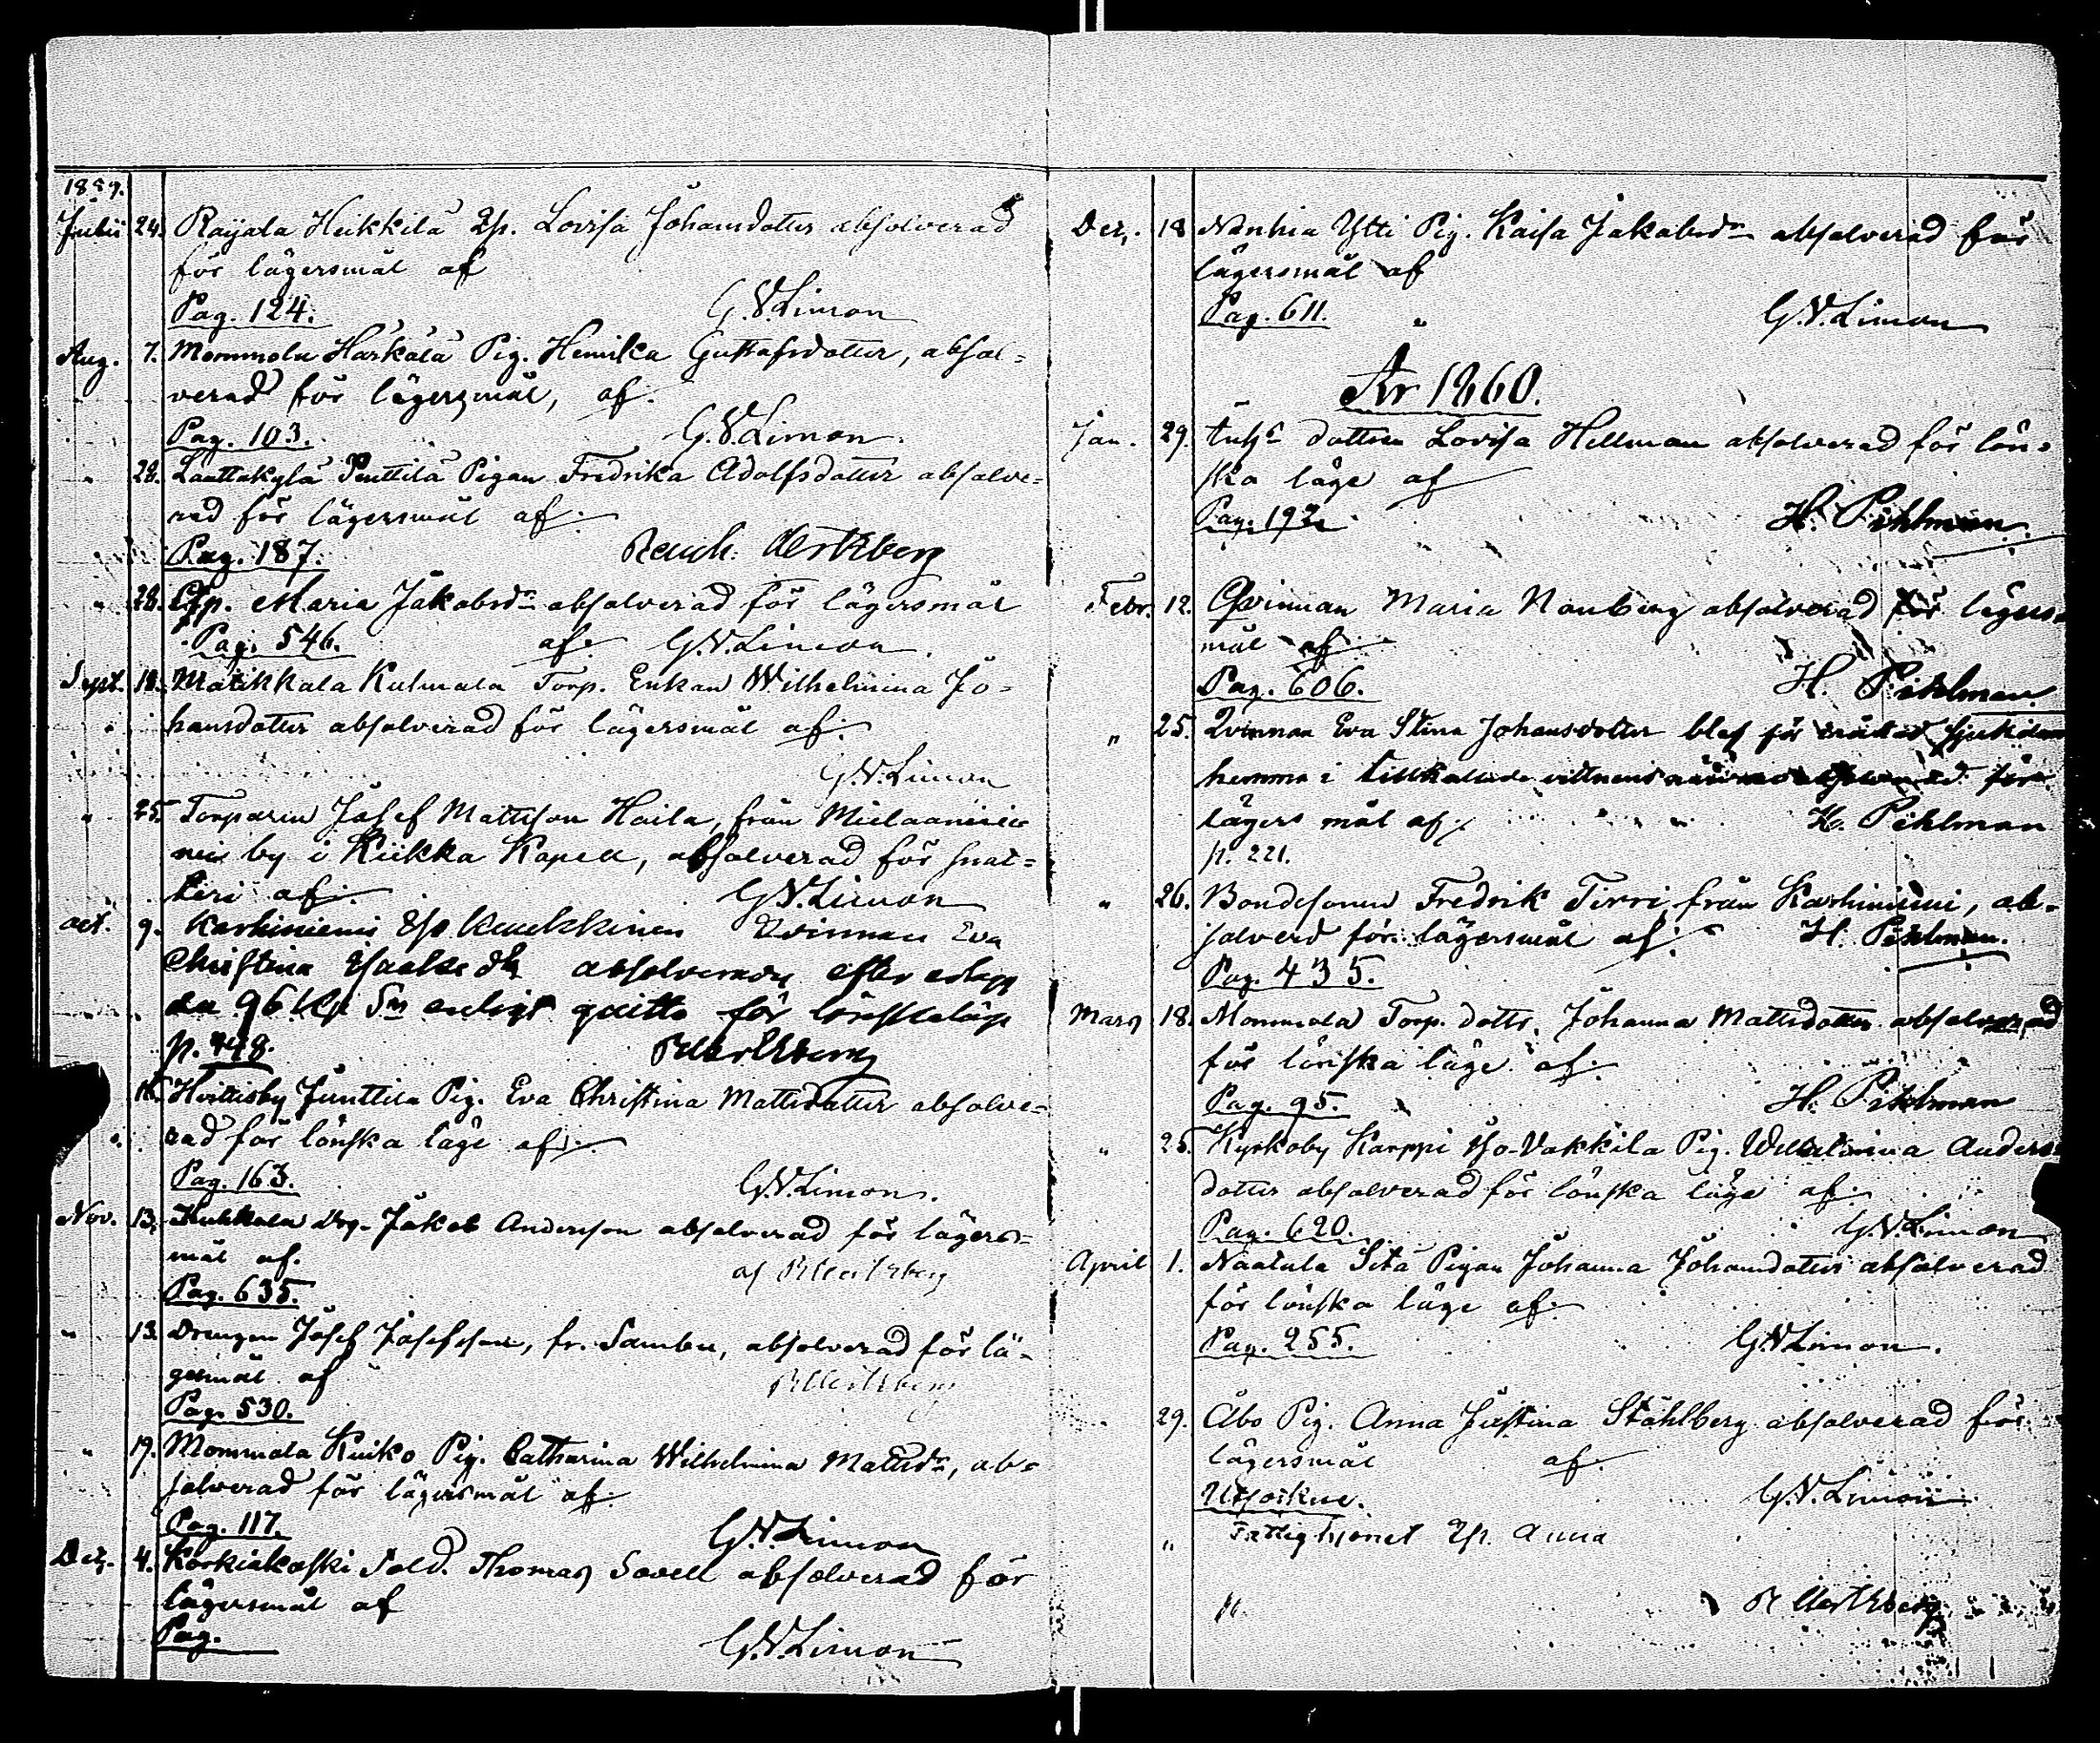 1859.
Julii 24. Raijala Heikkilä Qp. Lovisa Johansdotter absolverad
för lägersmål af
Pag. 124. G.V. Limon
Aug. 7. Mommola Harkälä Pig. Henrika Gustafsdotter, absol-
verad för lägersmål, af.
Pag. 103. G.V. Limon
" 28. Lauttakylä Penttilä Pigan Fredrika Adolfsdotter absolve-
rad för lägersmål af.
Pag. 187.
" 28. Maria Jakobsdr absolverad för lägersmål
Pag. 546. af. G.V. Limon.
Sept. 18. Matikkala Kulmala Torp. Enkan Wilhelmina Jo-
hansdotter absolverad för lägersmål af.
G.V. Limon
" 25. Torparen Josef Mattsson Haila, från
by i Kiikka Kapell, absolverad för snat-
teri af. G.V. Limon
Oct. 9. Karhiniemi Kaukkinen Qvinnan Eva
Christina efter erlagd
96 Kop. Sr enligt qvitto för lönskaläge
p. 448.
16. Hvittisby Junttila Pig. Eva Christina Mattsdotter absolve-
rad för lönska läge af.
Pag. 163. G.V. Limon.
Nov. 13. Drg. Jakob Andersson absolverad för lägers-
mål af. af
Pag. 635.
" 13. Drengen Josef Josefsson, fr. Sambu, absolverad för lä-
gersmål af
Pag. 530.
" 19. Mommola Kuiko Pig. Catharina Wilhelmina Mattsdr, ab-
solverad för lägersmål af.
Pag. 117. G.V. Limon
Dec. 4. Korkiakoski Sold. Thomas Savell absolverad för
lägersmål af
Pag. G.V. Limon
Dec. 18 Nanhia Ytti Pig. Kaisa Jakobsdr absolverad för
lägersmål af
Pag. 611. G.V. Limon
År 1860.
Jan. 29. dottren Lovisa Hellman absolverad för lön-
ska läge af
Pag. 192. H. Pihlman.
Febr. 12. Qvinnan Maria Nauberg absolverad för lägers-
mål af
Pag. 606. H. Pihlman
" 25. Qvinnan Eva Stina Johansdotter blef för sjukdom
hemma i tillkallade vittnens närvaro absolverad för
lägers mål af. H. Pihlman
p. 221.
" 26. Bondesonen Fredrik Tirri från Karhiniemi, ab-
solverd för lägersmål af. H. Pihlman.
Pag. 435.
Mars 18. Mommola Torp. dottr. Johanna Mattsdotter absolverad
för lönska läge af.
Pag. 95. H. Pihlman
" 25. Kyrkoby Karppi Vakkila Pig. Wilhelmina Anders-
dotter absolverad för lönska läge af.
Pag. 620. G.V. Limon
April 1. Naatula Sitä Pigan Johanna Johansdotter absolverad
för lönska läge af.
Pag. 255. G.V. Limon.
29. Åbo Pig. Anna Justina Ståhlberg absolverad för
lägersmål af.
G.V. Limon
" Fattighjonet Anna
p.